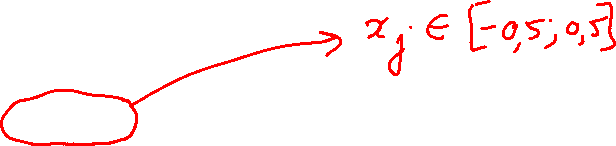 x_j ∈ [-0,5; 0,5]